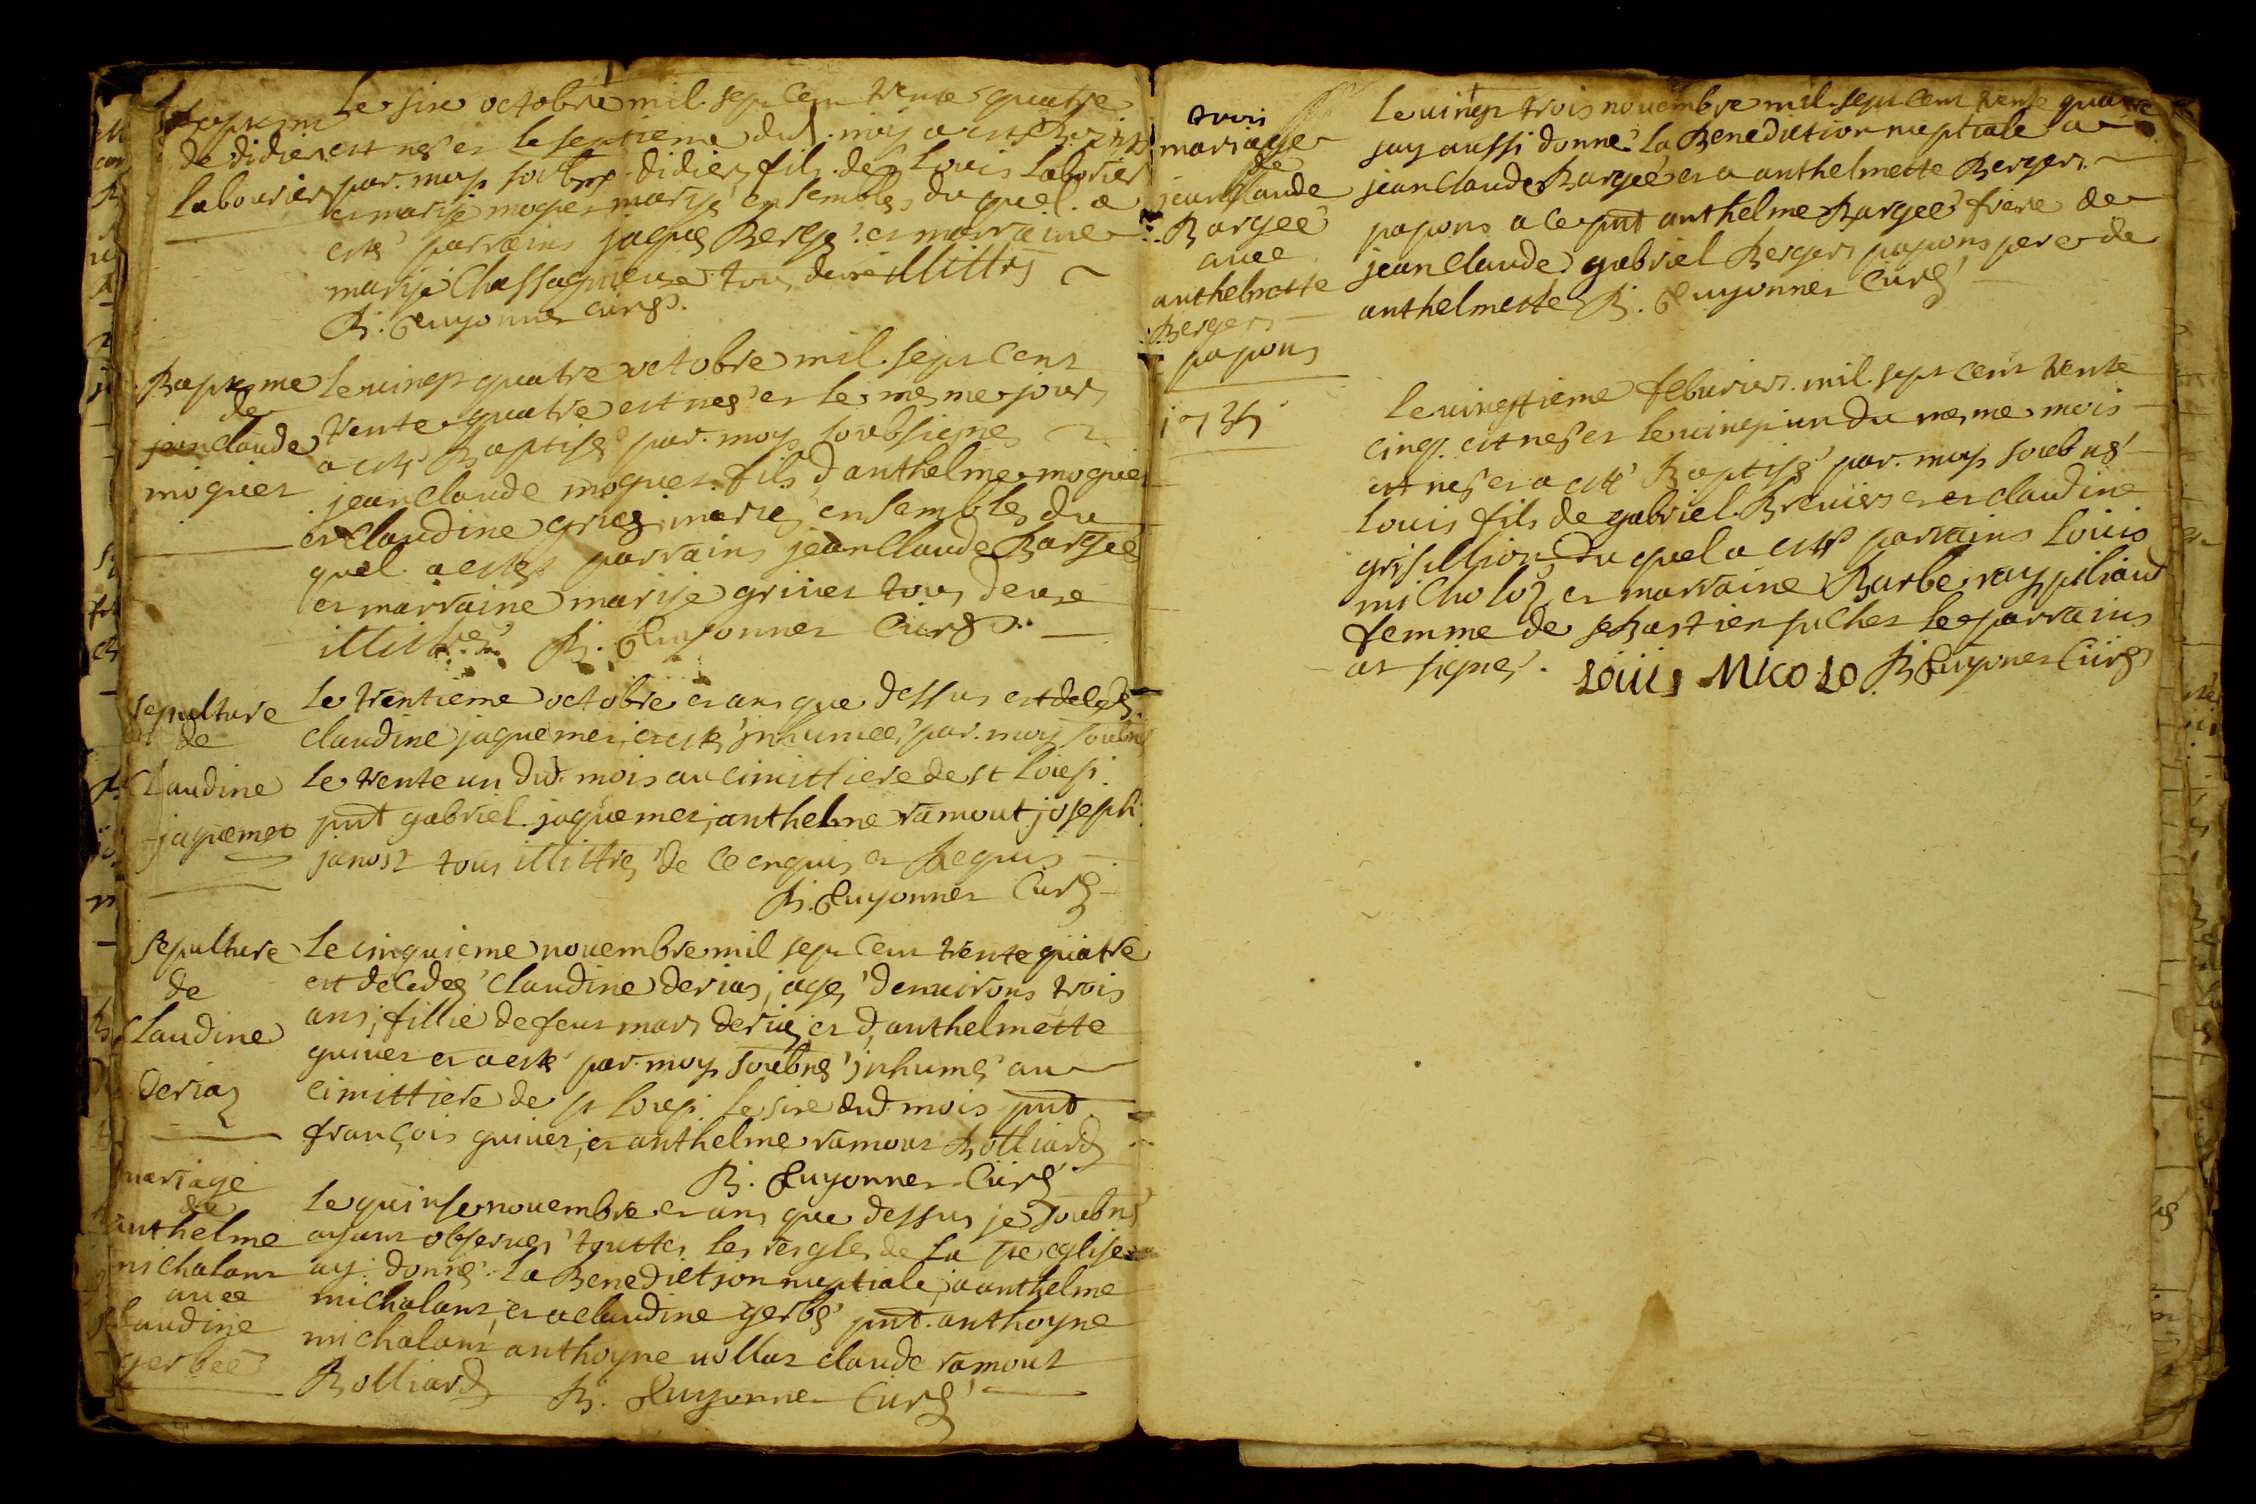 Baptesme
de didier
labourier
Le sixe octobre mil sept cent trente quatre
est nes et le septieme dud. moy a esté Baptisé
par moy soubne didier fils de Louis Labourier
et mariye moquet mariyé ensembles du quel a
esté parrains jaque Bergé et marraine
mariye Chassagnieuse tous deuxe illittrés
B. Guyonnet curé
Baptesme
de
jean claude
moquet
Le vingt quatre octobre mil sept cent
trente quatre est nes et le mesme jours
a esté Baptisé par moy soubsigné
jean Claude moquet fils d'anthelme moquet
et Claudine grivet mariés ensembles du
quel a estes parrains jean Claude Bargeé
et marraine mariye grivet tous deuxe
illittres B. Guyonnet Curé
sepulture
de
Claudine
jaquemet
Le trentieme octobre et ans que dessus est decedé
claudine jaquemet, et esté inhumeé par moy soubné
le trente un dud. mois au cimittiere de st
pnt gabriel jaquemet, anthelme ramout joseph
janost tous illittres de ce enquis et Requis
B. Guyonnet Curé
sepulture
de
Claudine
deriaz
Le cinquieme novembre mil sept cent trente quatre
est decedeé Claudine derias, ages d'environs trois
ans, fillie de feux marc deriaz et d'anthelmette
guivet et a esté par moy soubné inhumé au
cimittiere de st le sixe dud. mois pnt
françois guivet, et anthelme ramout Bolliard
B. Guyonnet Curé
mariage
de
anthelme
michalant
avee
Claudine
gerbeé
Le quinse novembre et ans que dessus je soubné
ayant observés touttes les regles de la ste eglise
ay donné la Benediction nuptiale, a anthelme
michalant, et a claudine gerbé pnt. anthoyne
michalant anthoyne vollat claude ramout
Bolliard B. Guyonnet Curé
mariage
de
jean Claude
Bargeé
avee
anthelmette
Bergers
papons
Le vingt trois novembre mil sept cent trente quatre
jay aussi donné la Benediction nuptiale a
jean Claude Bargeé et a anthelmette Bergers
papons a ce pnt anthelme Bargeé frere de
jean Claude gabriel Bergers papons pere de
anthelmette B. Guyonnet Curé
1735
Le vingttieme feburier mil sept cent trente
cinq est nes et le vingt un du mesme mois
est nes et a esté Baptisé par moy soubné
Louis fils de gabriel Brevier et et claudine
grisillion du quel a esté parrains Louis
micholoz et marraine Barbe
femme de sebastien le parrains
at signé. Loüis Mico Lo B Guyonnet Curé